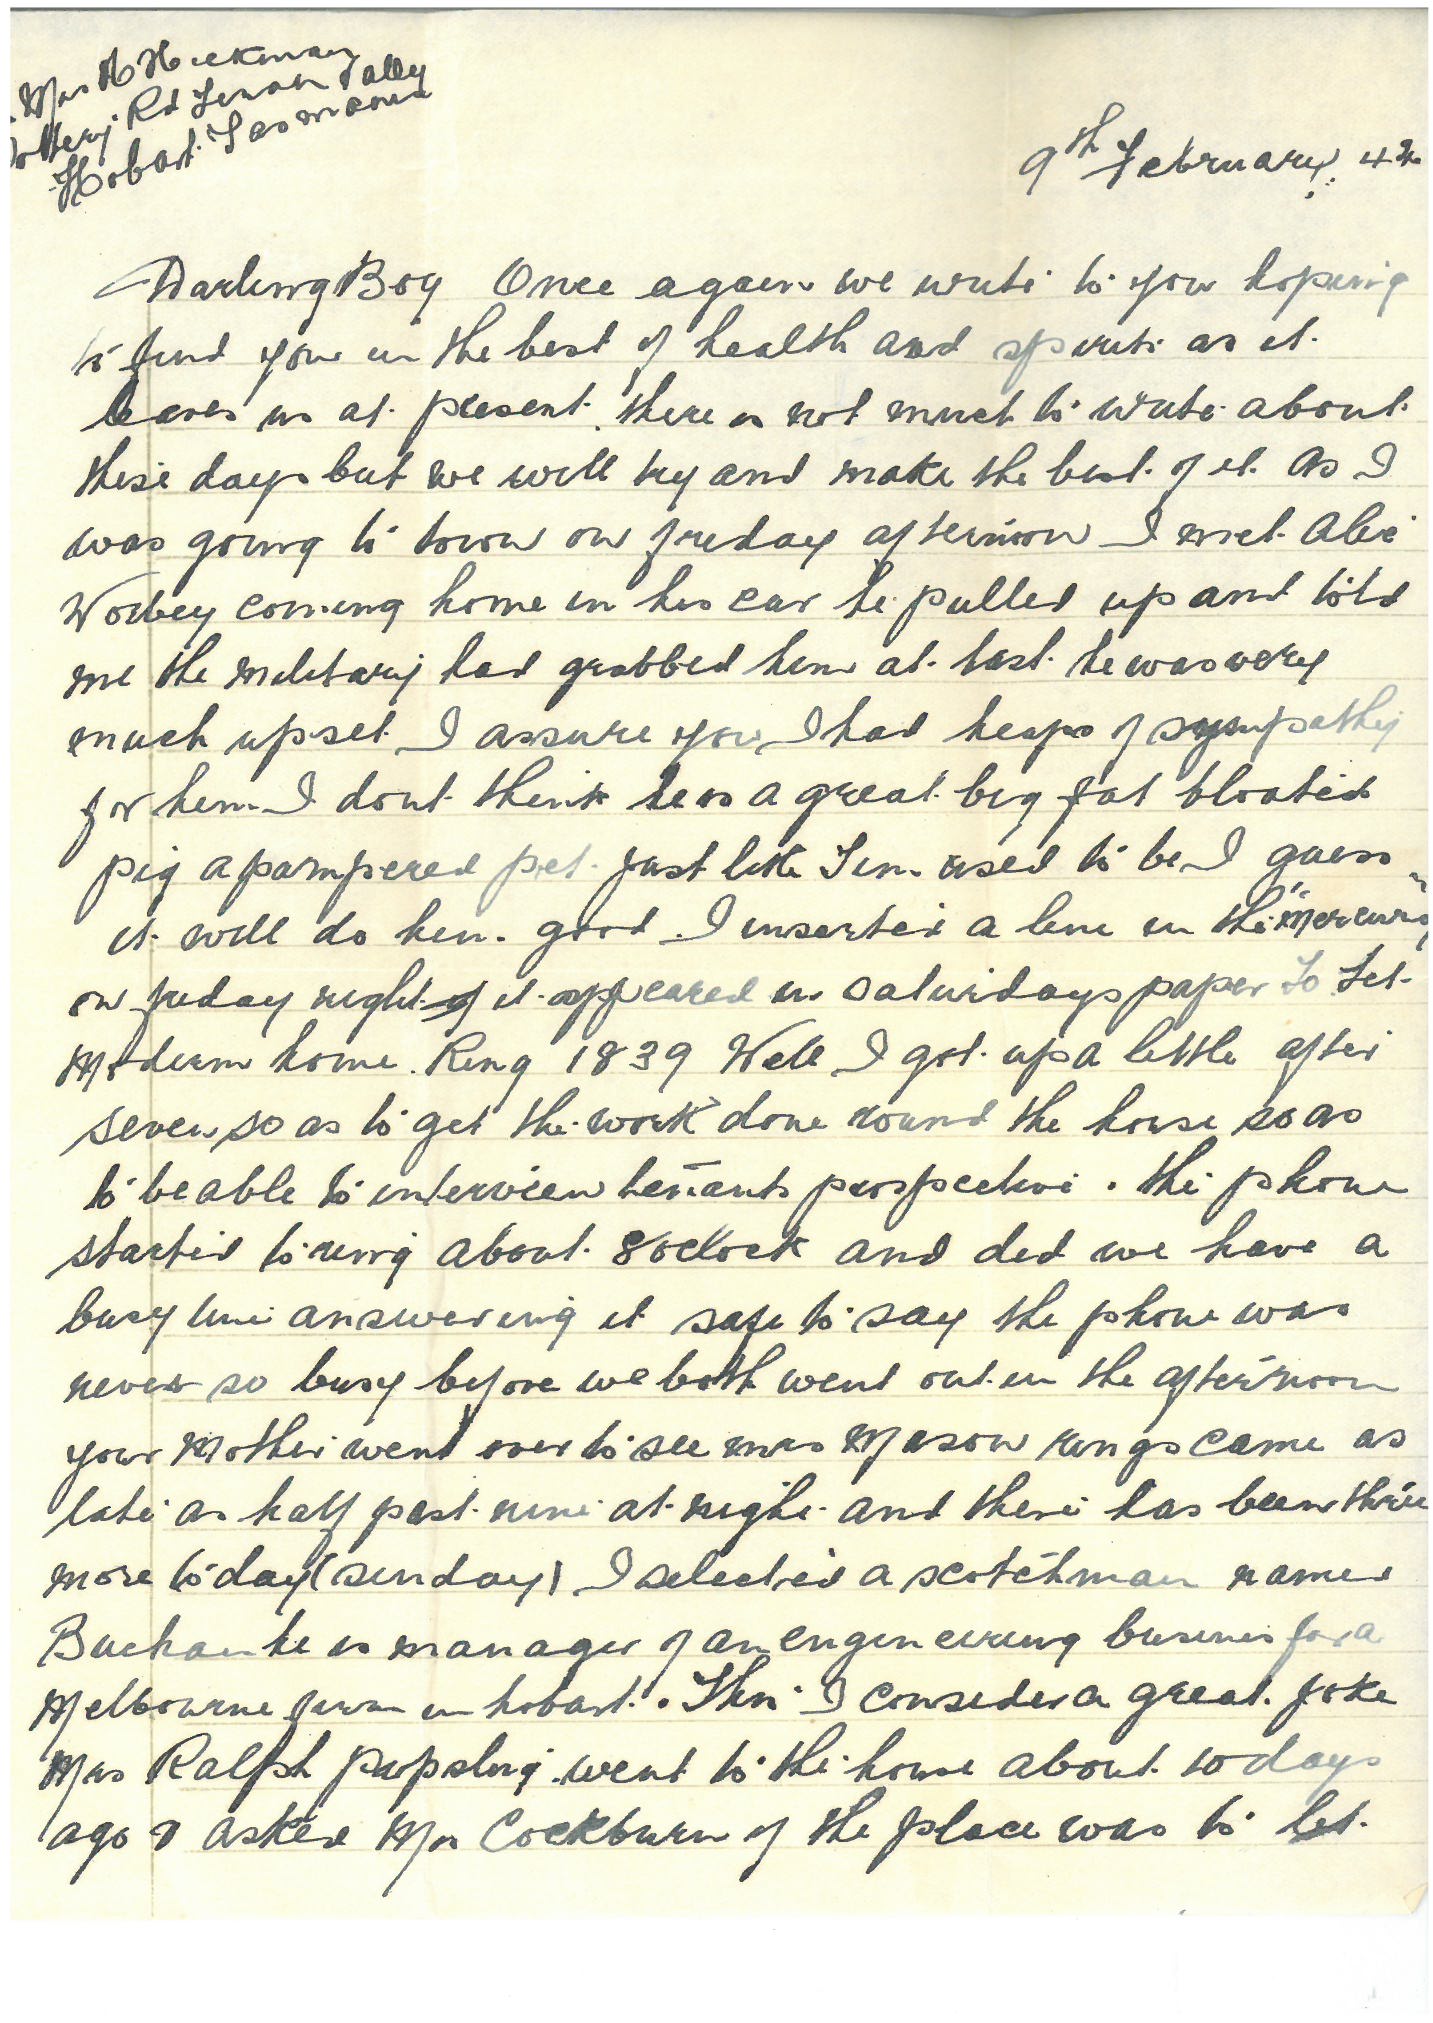 Mrs A Hickman
Pottery Rd Lenah Valley
Hobart Tasmania
9th February 42
Darling Boy Once again we write to you hoping
to find you in the best of health and spirits as it
leaves us at present. there is not much to write about
these days but we will try and make the best of it. As I
was going to town on friday afternoon I met Alec
Worbey coming home in his car he pulled up and told
me the military had grabbed him at last. he was very
much upset I assure you, I had heaps of sympathy
for him I dont think he is a great big fat bloated
pig a pampered pet. just like Tim used to be I guess
it will do him good I inserted a line in the "Mercury"
on friday night it appeared in Saturdays paper To Let
Modern home. Ring 1839 Well I got up a little after
seven so as to get the work done round the house so as
to be able to interview tenants prospective. the phone
started to ring about 8 oclock and did we have a
busy time answering it safe to say the phone was
never so busy before we both went out in the afternoon
your Mother went over to see mrs Mason rings came as
late as half past nine at night and there has been three
more to day (sunday) I selected a scotchman named
Buchan he is manager of an engineering business for a
Melbourne firm in hobart. This I consider a great joke
Mrs Ralph went to the house about 10 days
ago & asked Mr Cockburn if the place was to let.